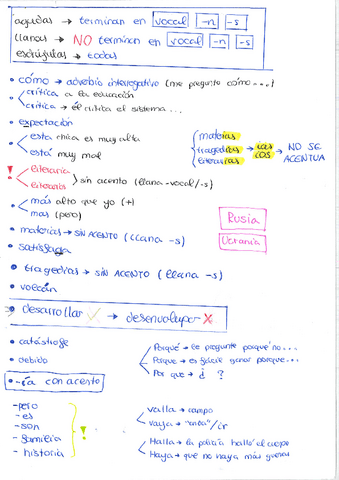 agudas → terminan en vocal -n -s
llanas → NO terminan en vocal -n -s
esdrújulas → todas
• cómo → adverbio interrogativo (me pregunto cómo....)
• crítica a la educación
critica → él critica el sistema...
• expectación
• esta chica es muy alta
está muy mal
materias
tragedias → ias → NO SE
literarias cos ACENTUA
! literaria
literario > sin acento (llana -vocal/-s)
• más alto que yo (+)
mas (pero)
Rusia
• materias → SIN ACENTO (llana -s)
Ucrania
• tragedias → SIN ACENTO (llana -s)
• volcán
• desarrollar ✓ → desenvolupar X
• catástrofe
• debido
Porqué → me pregunto porqué no...
Porque → es fácil ganar porque...
Por que → ¿ ?
• -ía con acento
-pero
-es
-son
-familia
-historia
!
valla → campo
vaya → "anda"/ir
Halla → la policía halló el cuerpo
Haya → que no haya más guerras